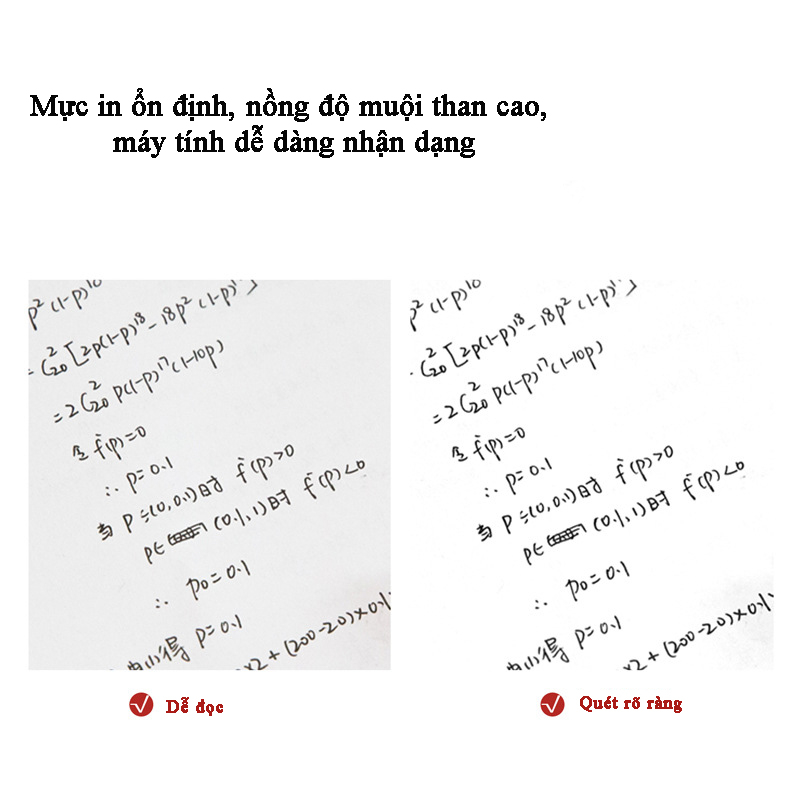 Mực in ổn định, nồng độ muội than cao,
máy tính dễ dàng nhận dạng
p² (1-p)¹⁸
= C²₂₀ [2p(1-p)¹⁸ - 18p² (1-p)¹⁷]
= 2C²₂₀ p(1-p)¹⁷ (1-10p)
令 f'(p)=0
∴ p=0.1
当 P=(0,0.1)时 f'(p)>0
p∈ (0.1,1)时 f'(p)<0
∴ p₀=0.1
得 p=0.1
x2+(200-20)×0.1
p² (1-p)¹⁸
C²₂₀ [2p(1-p)¹⁸ - 18p² (1-p)¹⁷]
= 2C²₂₀ p(1-p)¹⁷ (1-10p)
令 f'(p)=0
∴ p=0.1
当 P=(0,0.1)时 f'(p)>0
p∈ (0.1,1)时 f'(p)<0
∴ p₀=0.1
得 p=0.1
x2+(200-20)×0.1
Dễ đọc
Quét rõ ràng